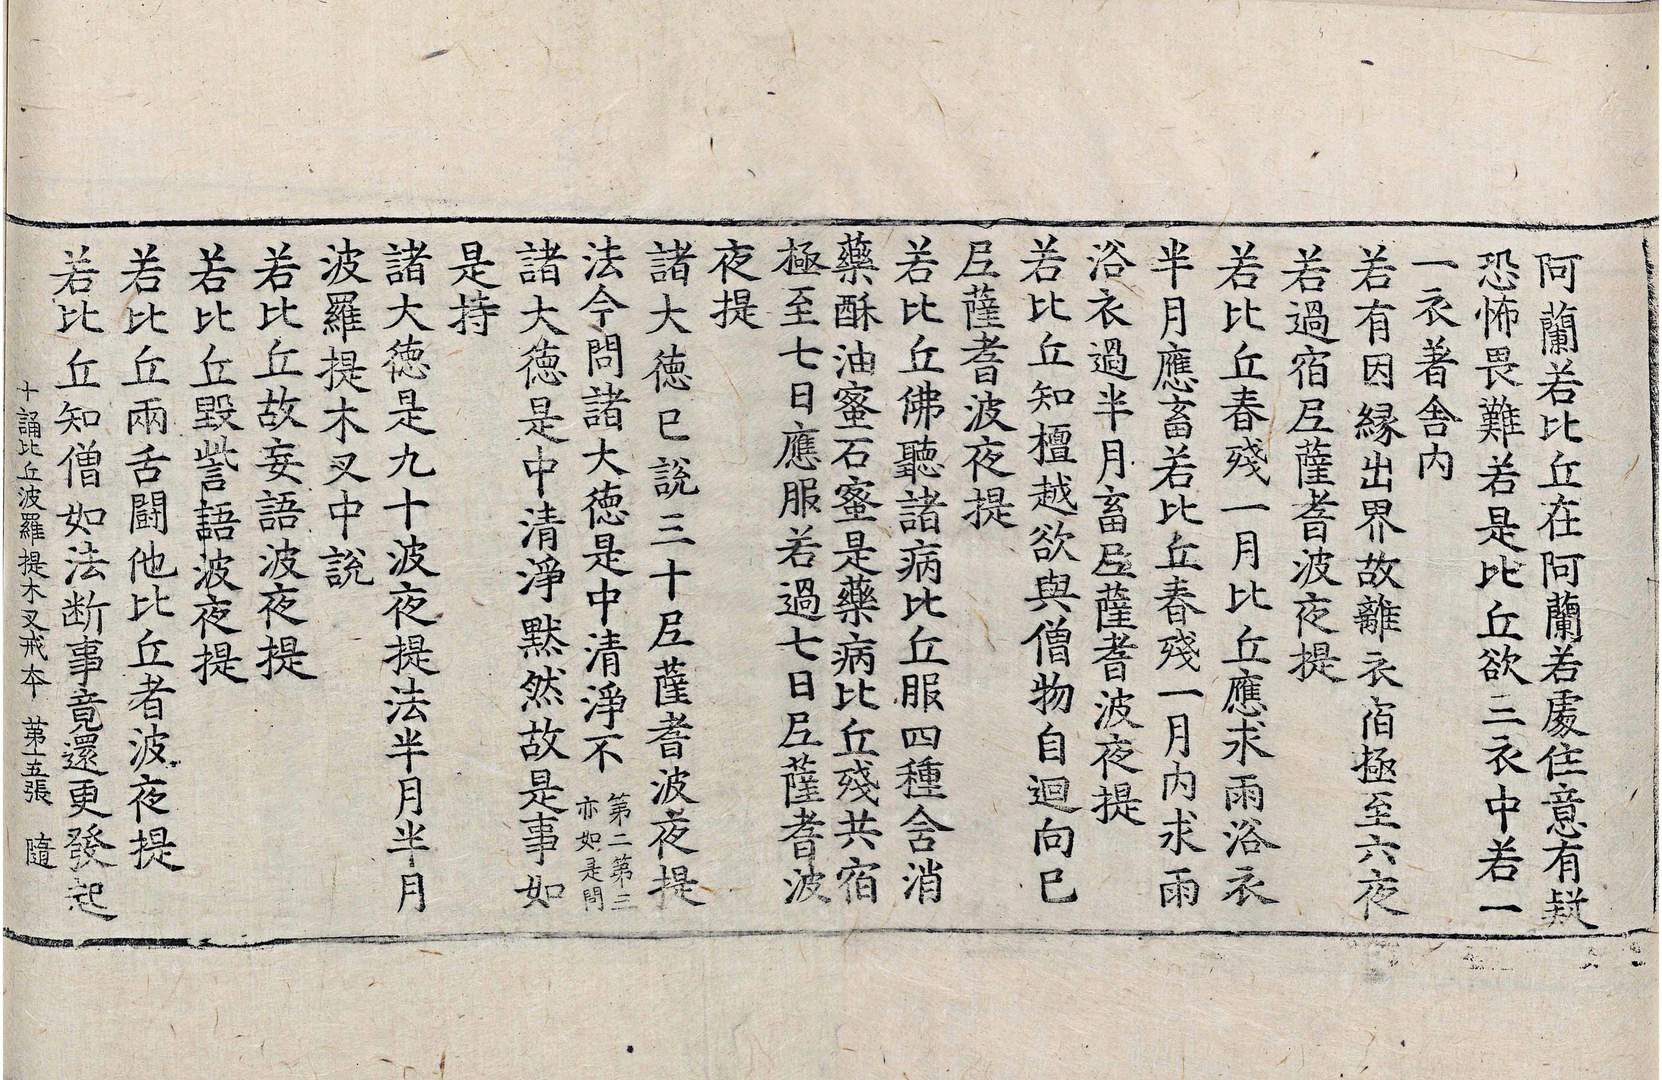 阿蘭若比丘在阿蘭若處住意有疑
恐怖畏難若是比丘欲三衣中若一
一衣著舍内
若有因緣出界故離衣宿極至六夜
若過宿尼薩耆波夜提
若比丘春殘一月比丘應求雨浴衣
半月應畜若比丘春殘一月内求雨
浴衣過半月畜尼薩耆波夜提
若比丘知檀越欲與僧物自迴向已
尼薩耆波夜提
若比丘佛聽諸病比丘服四種含消
藥酥油蜜石蜜是藥病比丘殘共宿
極至七日應服若過七日尼薩耆波
夜提
諸大德已說三十尼薩耆波夜提
法今問諸大德是中清淨不第二第三亦如是問
諸大德是中清淨黙然故是事如
是持
諸大德是九十波夜提法半月半月
波羅提木叉中說
若比丘故妄語波夜提
若比丘毀訾語波夜提
若比丘兩舌鬪他比丘者波夜提
若比丘知僧如法断事竟還更發起
十誦比丘波羅提木叉戒本 第十五張 隨